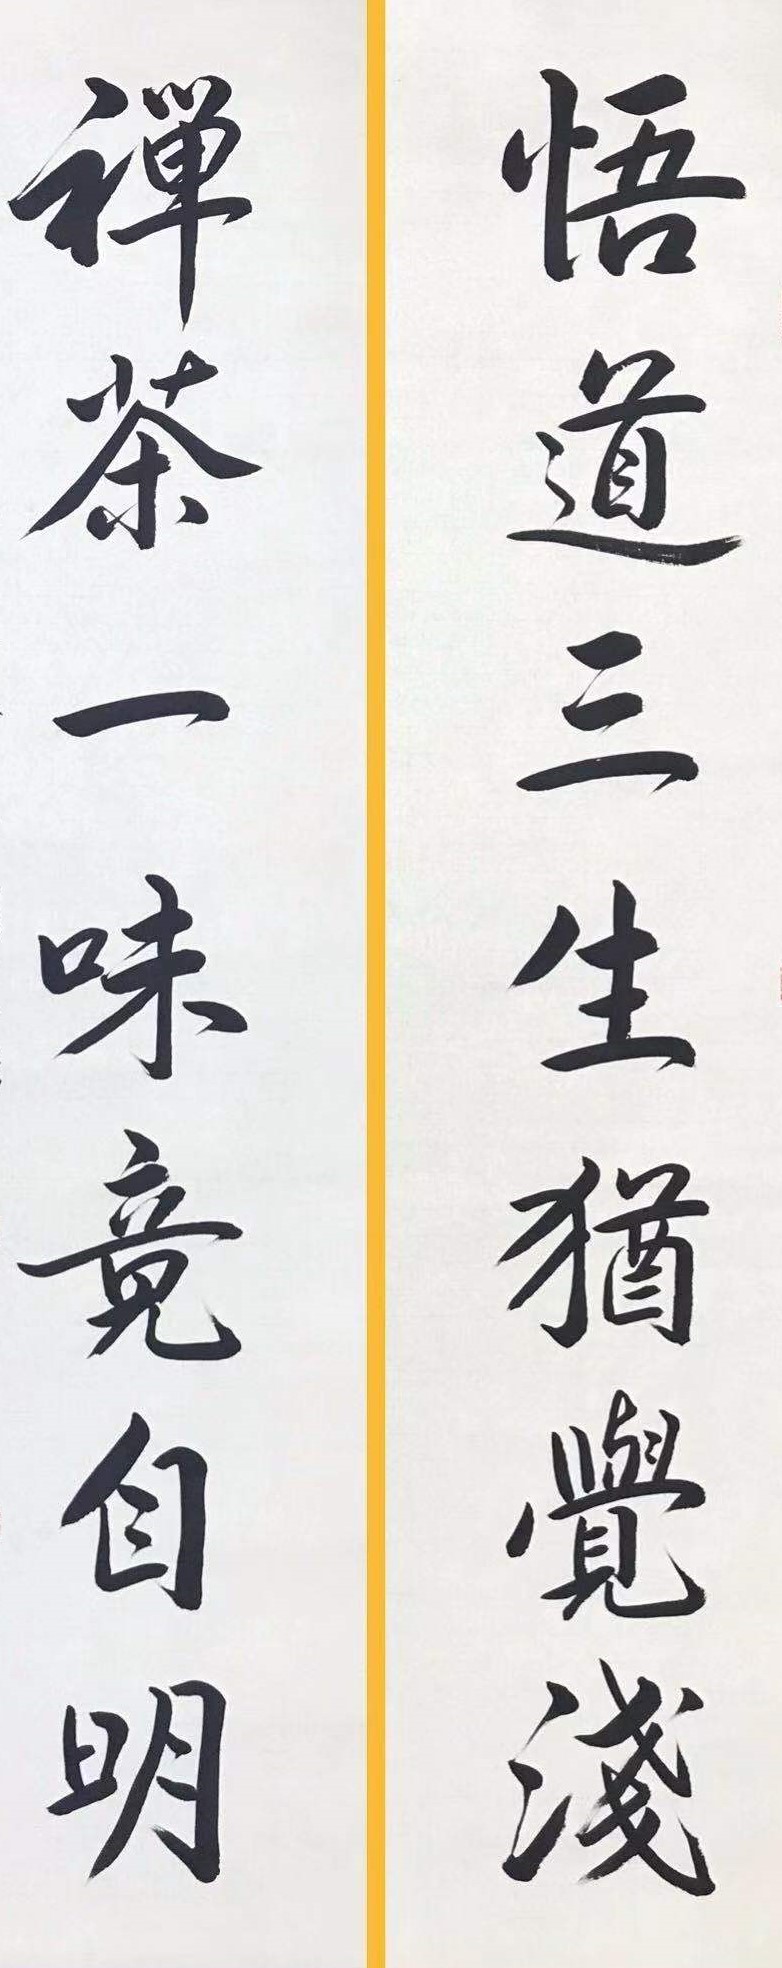 悟道三生猶覺淺
禪茶一味竟自明